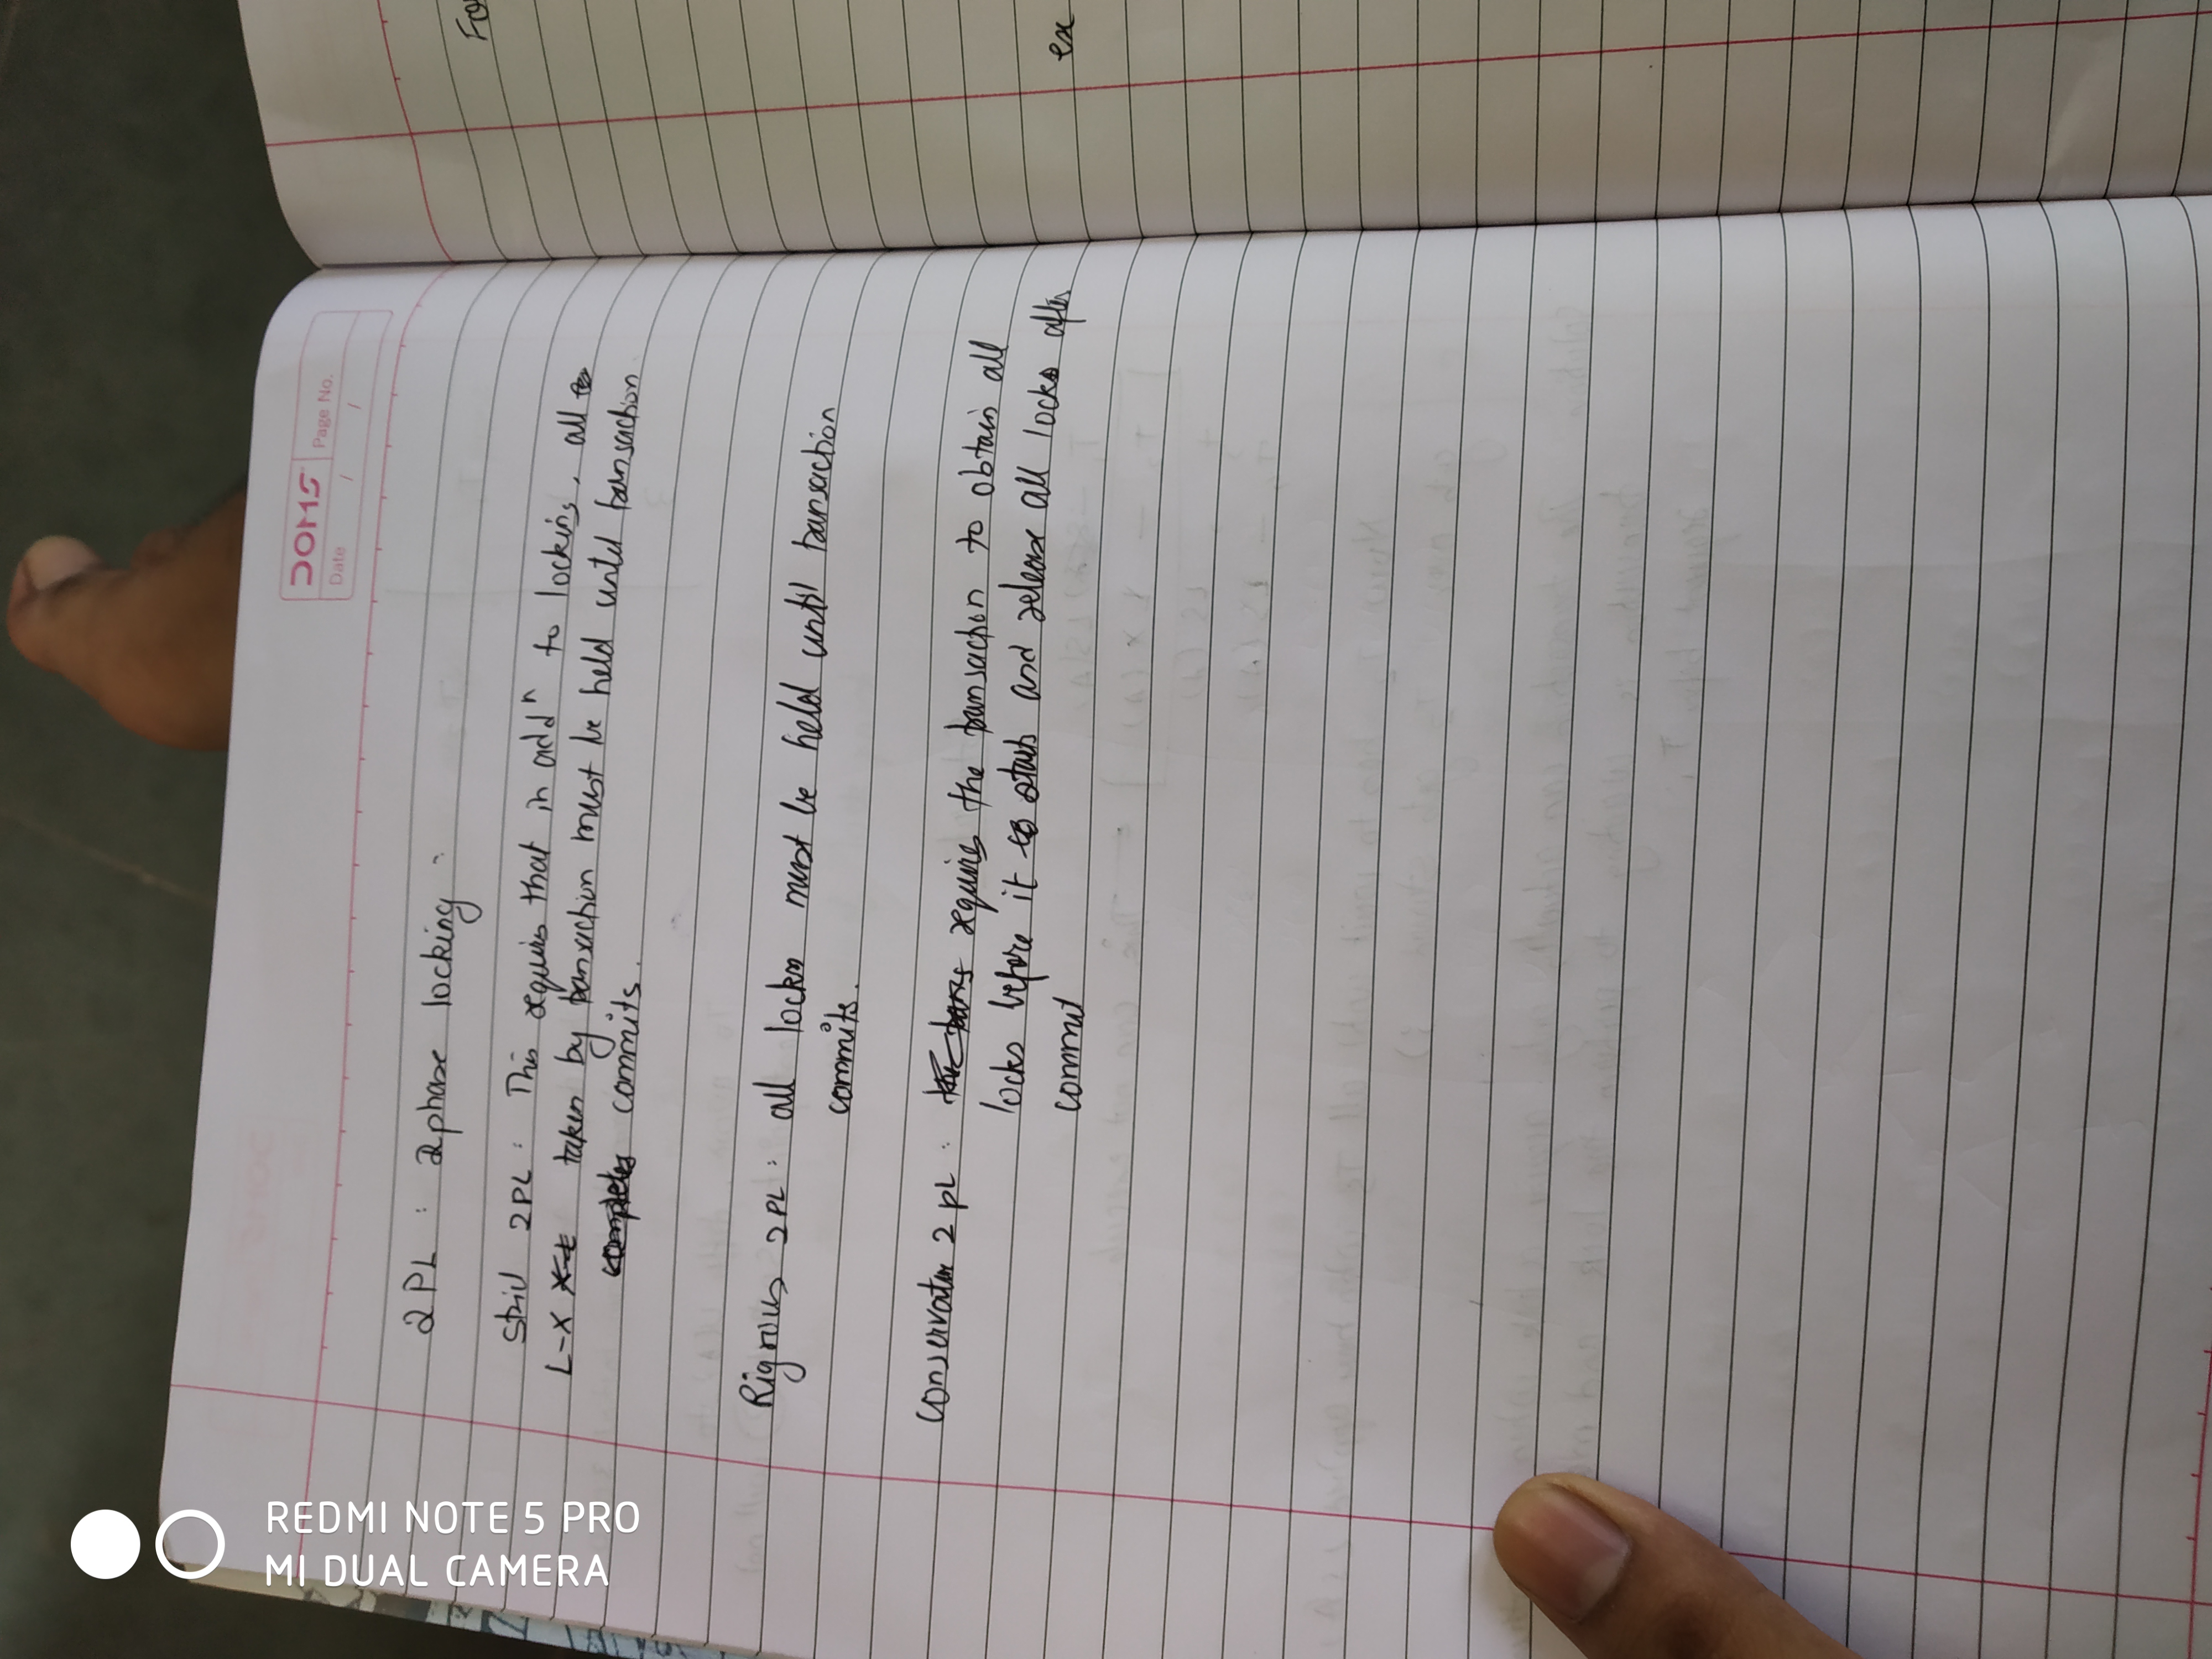 DOMS
Page No.
Date / /
2PL : 2phase locking :
Strict 2PL : This requires that in addⁿ to locking, all
L-X taken by transaction must be held until transaction
commits.
Rigrous 2PL : all locks must be held until transaction
commits.
Conservative 2PL : requires the transaction to obtain all
locks before it starts and release all locks after
commit
Fo
ex
REDMI NOTE 5 PRO
MI DUAL CAMERA